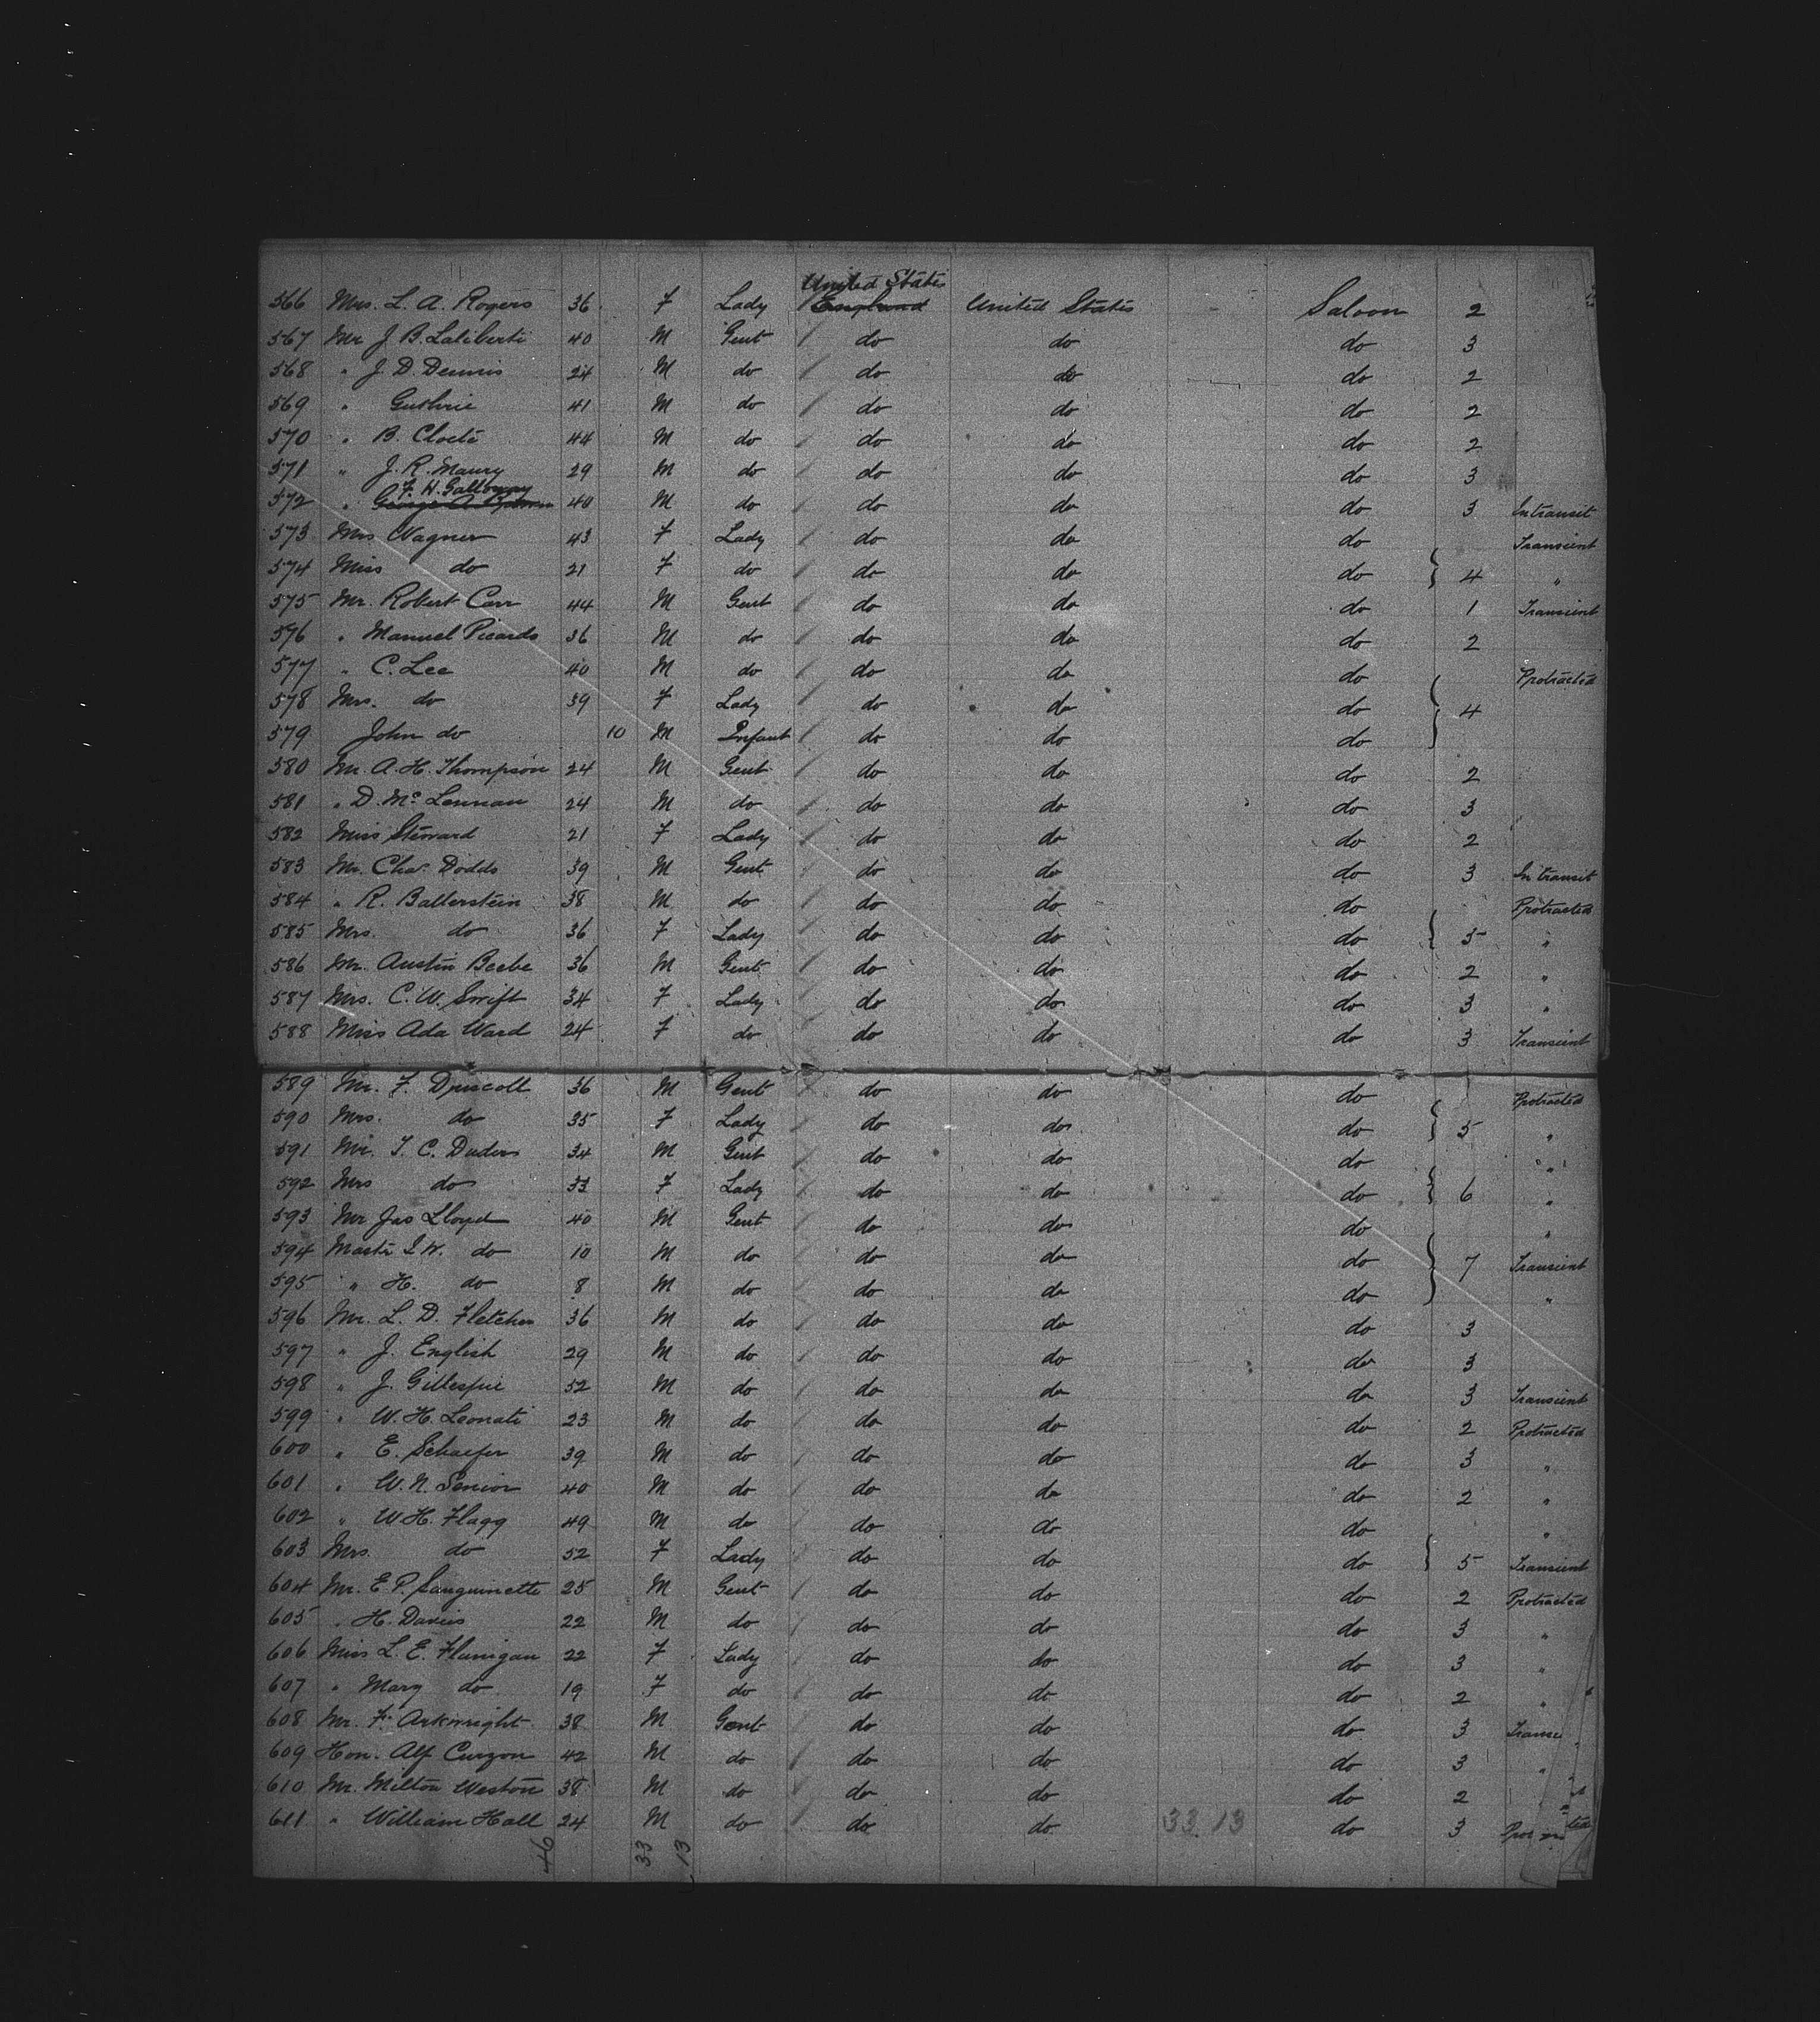 United States
566 Mrs. L. A. Rogers 36 F Lady England United States Saloon 2
567 Mr J. B. Laliberti 40 M Gent do do do 3
568 " J. D. Dennis 24 M do do do do 2
569 " Guthrie 41 M do do do do 2
570 " B. Cloete 44 M do do do do 2
571 " J. R. Maury 29 M do do do do 3
F. H. Galloway
572 " George A. 40 M do do do do 3 Intransit
573 Mrs Wagner 43 F Lady do do do Transient
574 Miss do 21 F do do do do } 4 "
575 Mr. Robert Carr 44 M Gent do do do 1 Transient
576 " Manuel Picards 36 M do do do do 2
577 " C. Lee 40 M do do do do Protracted
578 Mrs. do 39 F Lady do do do } 4
579 John do 10 M Infant do do do
580 Mr. A. H. Thompson 24 M Gent do do do 2
581 " D. Mc Lennan 24 M do do do do 3
582 Miss Steward 21 F Lady do do do 2
583 Mr. Chas. Dodds 39 M Gent do do do 3 In transit
584 " R. Batterstein 38 M do do do do Protracted
585 Mrs. do 36 F Lady do do do } 5 "
586 Mr. Austin Beebe 36 M Gent do do do 2 "
587 Mrs. C. W. Swift 34 F Lady do do do 3 "
588 Miss Ada Ward 24 F do do do do 3 Transient
589 Mr. F. Driscoll 36 M Gent do do do Protracted
590 Mrs. do 35 F Lady do do do } 5 "
591 Mr. T. C. Duders 34 M Gent do do do "
592 Mrs do 33 F Lady do do do } 6 "
593 Mr Jas Lloyd 40 M Gent do do do "
594 Mastr I. W. do 10 M do do do do } 7 Transient
595 " H. do 8 M do do do do "
596 Mr. L. D. Fletcher 36 M do do do do 3
597 " J. English 29 M do do do do 3
598 " J. Gillespie 52 M do do do do 3 Transient
599 " W. H. Leonati 23 M do do do do 2 Protracted
600 " E. Schaefer 39 M do do do do 3 "
601 " W. N. Senior 40 M do do do do 2 "
602 " W. H. Flagg 49 M do do do do "
603 Mrs. do 52 F Lady do do do } 5 Transient
604 Mr. E. P. Sanguinette 25 M Gent do do do 2 Protracted
605 " H. Davies 22 M do do do do 3 "
606 Miss L. E. Flanigan 22 F Lady do do do 3 "
607 " Mary do 19 F do do do do 2 "
608 Mr. F. Arkwright 38 M Gent do do do 3 Transi
609 Hon. Alf Curzon 42 M do do do do 3 "
610 Mr. Milton Weston 38 M do do do do 2
611 " William Hall 24 M do do do 33 13 do 3
46 33 13